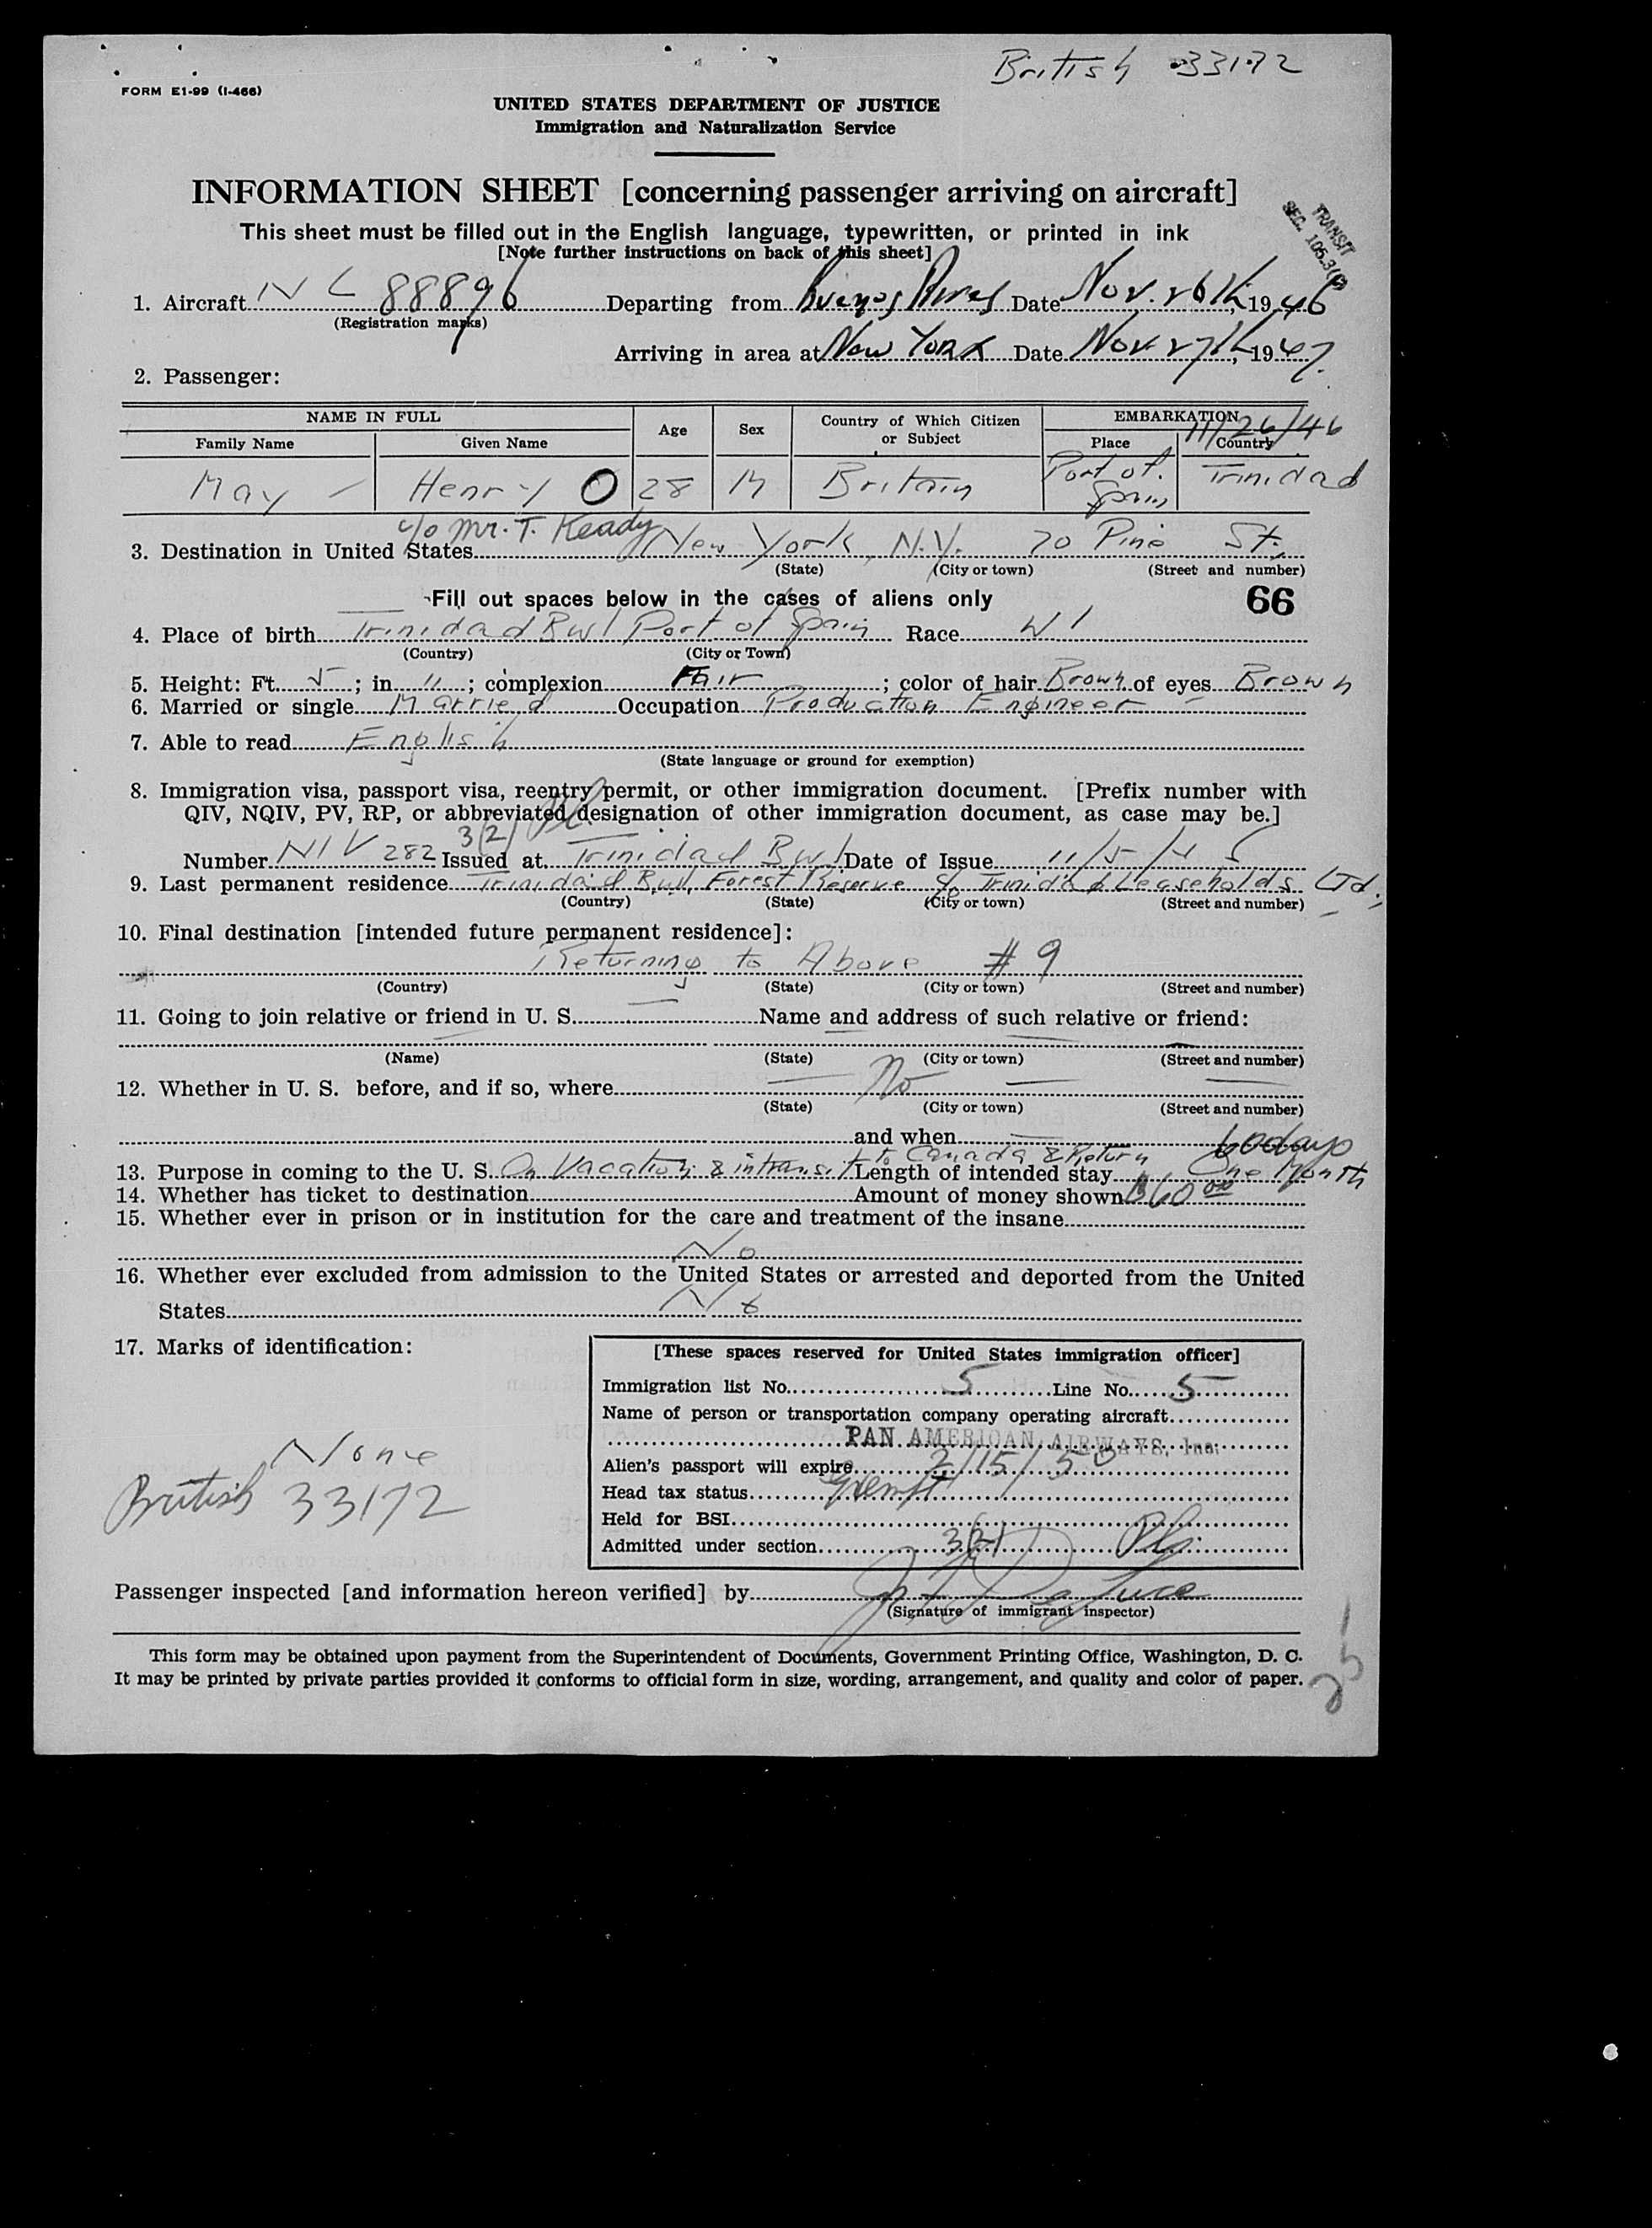 British 33172
FORM E1-99 (I-466)
UNITED STATES DEPARTMENT OF JUSTICE
Immigration and Naturalization Service
INFORMATION SHEET [concerning passenger arriving on aircraft]
TRANSIT
SEC. 105.3(
This sheet must be filled out in the English language, typewritten, or printed in ink
[Note further instructions on back of this sheet]
1. Aircraft NC 88896 Departing from Buenos Aires Date Nov. 26th, 1946
(Registration marks)
Arriving in area at New York Date Nov. 27th, 1947.
2. Passenger:
NAME IN FULL Age Sex Country of Which Citizen or Subject EMBARKATION
11/26/46
Family Name Given Name Place Country
May Henry O 28 M Britain Port of Spain Trinidad
c/o Mr. T. Keady
3. Destination in United States New York, N.Y. 70 Pine St.,
(State) (City or town) (Street and number)
Fill out spaces below in the cases of aliens only 66
4. Place of birth Trinidad BWI Port of Spain Race WI
(Country) (City or Town)
5. Height: Ft. 5; in 11; complexion Fair; color of hair Brown of eyes Brown
6. Married or single Married Occupation Production Engineer
7. Able to read English
(State language or ground for exemption)
8. Immigration visa, passport visa, reentry permit, or other immigration document. [Prefix number with
QIV, NQIV, PV, RP, or abbreviated designation of other immigration document, as case may be.]
3(2)
Number NIV 282 Issued at Trinidad BWI Date of Issue 11/5/45
9. Last permanent residence Trinidad B.W.I, Forest Reserve c/o Trinidad Leaseholds Ltd.,
(Country) (State) (City or town) (Street and number)
10. Final destination [intended future permanent residence]:
Returning to Above # 9
(Country) (State) (City or town) (Street and number)
11. Going to join relative or friend in U. S. Name and address of such relative or friend:
(Name) (State) (City or town) (Street and number)
12. Whether in U. S. before, and if so, where No
(State) (City or town) (Street and number)
and when 60 days
to Canada & Return
13. Purpose in coming to the U. S. On Vacation & intransit Length of intended stay One Month
14. Whether has ticket to destination Amount of money shown $60 00
15. Whether ever in prison or in institution for the care and treatment of the insane
No
16. Whether ever excluded from admission to the United States or arrested and deported from the United
States No
17. Marks of identification:
None
British 33172
[These spaces reserved for United States immigration officer]
Immigration list No. 5 Line No. 5
Name of person or transportation company operating aircraft
PAN AMERICAN AIRWAYS, Inc.
Alien's passport will expire 2/15/50
Head tax status Exempt
Held for BSI
Admitted under section 3(2)
Passenger inspected [and information hereon verified] by
(Signature of immigrant inspector)
This form may be obtained upon payment from the Superintendent of Documents, Government Printing Office, Washington, D. C.
It may be printed by private parties provided it conforms to official form in size, wording, arrangement, and quality and color of paper.
25